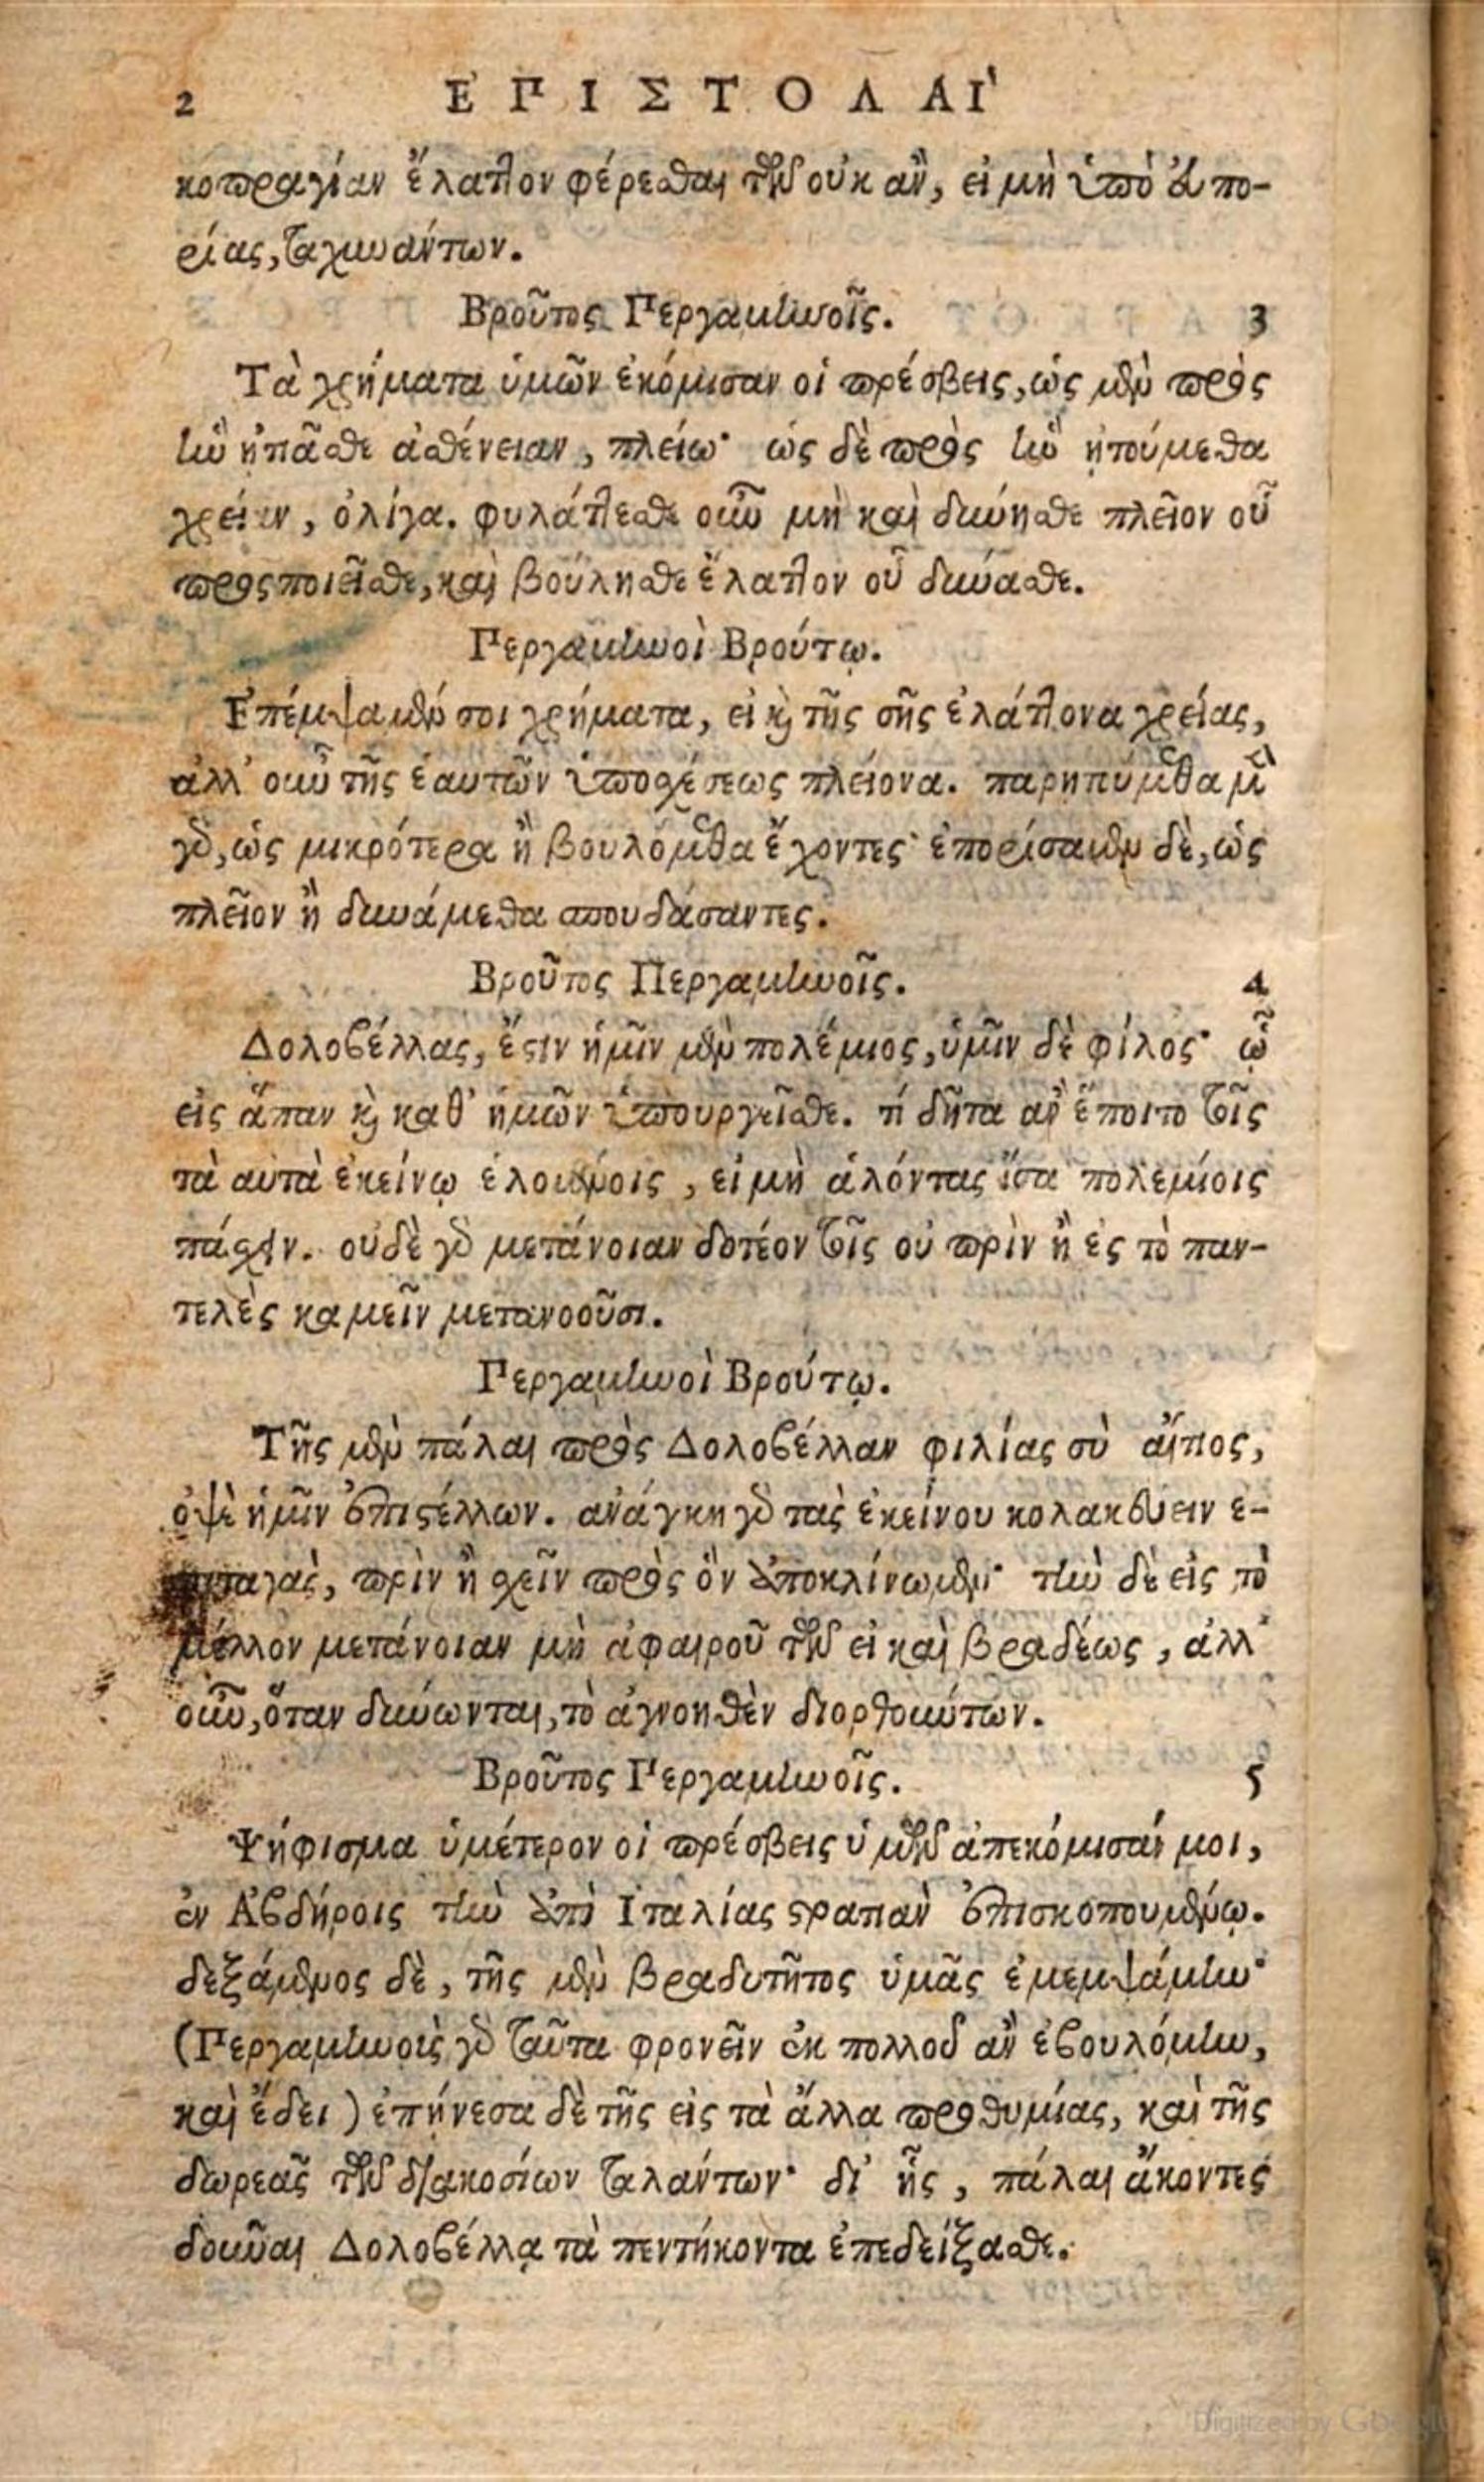 2 ΕΠΙΣΤΟΛΑΙ
κοπραγίαν ἔλαττον φέρεσθαι τῶν οὐκ ἂν, εἰ μὴ ὑπὸ ἀπο-
ρίας, ταχυνάντων.
Βροῦτος Περγαμηνοῖς. 3
Τὰ χρήματα ὑμῶν ἐκόμισαν οἱ πρέσβεις, ὡς μὲν πρὸς
ἣν ᾐτιᾶσθε ἀσθένειαν, πλείω· ὡς δὲ πρὸς ἣν ᾐτούμεθα
χρείαν, ὀλίγα. φυλάττεσθε οὖν μὴ καὶ δύνησθε πλεῖον οὗ
προςποιεῖσθε, καὶ βούλησθε ἔλαττον οὗ δύνασθε.
Περγαμηνοὶ Βρούτῳ.
Ἐπέμψαμέν σοι χρήματα, εἰ καὶ τῆς σῆς ἐλάττονα χρείας,
ἀλλ' οὖν τῆς ἑαυτῶν ὑποσχέσεως πλείονα. παρῃτούμεθα μὲν
γὰρ, ὡς μικρότερα ἢ βουλόμεθα ἔχοντες· ἐπορίσαμεν δὲ, ὡς
πλεῖον ἢ δυνάμεθα σπουδάσαντες.
Βροῦτος Περγαμηνοῖς. 4
Δολοβέλλας, ἔστιν ἡμῖν μὲν πολέμιος, ὑμῖν δὲ φίλος· ᾧ
εἰς ἅπαν καὶ καθ' ἡμῶν ὑπουργεῖσθε. τί δῆτα ἂν ἕποιτο τοῖς
τὰ αὐτὰ ἐκείνῳ ἑλουμένοις, εἰ μὴ ἁλόντας ἴσα πολεμίοις
πάσχειν. οὐδὲ γὰρ μετάνοιαν δοτέον τοῖς οὐ πρὶν ἢ ἐς τὸ παν-
τελὲς καμεῖν μετανοοῦσι.
Περγαμηνοὶ Βρούτῳ.
Τῆς μὲν πάλαι πρὸς Δολοβέλλαν φιλίας σὺ αἴτιος,
ὀψὲ ἡμῖν ἐπιστέλλων. ἀνάγκη γὰρ τὰς ἐκείνου κολακεύειν ἐ-
πιταγὰς, πρὶν ἢ σχεῖν πρὸς ὃν ἀποκλίνωμεν· τὴν δὲ εἰς τὸ
μέλλον μετάνοιαν μὴ ἀφαιροῦ τῶν εἰ καὶ βραδέως, ἀλλ'
οὖν, ὅταν δύνωνται, τὸ ἀγνοηθὲν διορθούντων.
Βροῦτος Περγαμηνοῖς. 5
Ψήφισμα ὑμέτερον οἱ πρέσβεις ὑμῶν ἀπεκόμισάν μοι,
ἐν Ἀβδήροις τὴν ἀπὸ Ἰταλίας στρατιὰν ἐπισκοπουμένῳ.
δεξάμενος δὲ, τῆς μὲν βραδυτῆτος ὑμᾶς ἐμεμψάμην·
(Περγαμηνοὺς γὰρ ταῦτα φρονεῖν ἐκ πολλοῦ ἂν ἐβουλόμην,
καὶ ἔδει) ἐπῄνεσα δὲ τῆς εἰς τὰ ἄλλα προθυμίας, καὶ τῆς
δωρεᾶς τῶν διακοσίων ταλάντων· δι' ἧς, πάλαι ἄκοντες
δοῦναι Δολοβέλλᾳ τὰ πεντήκοντα ἐπεδείξασθε.
Digitized by Google